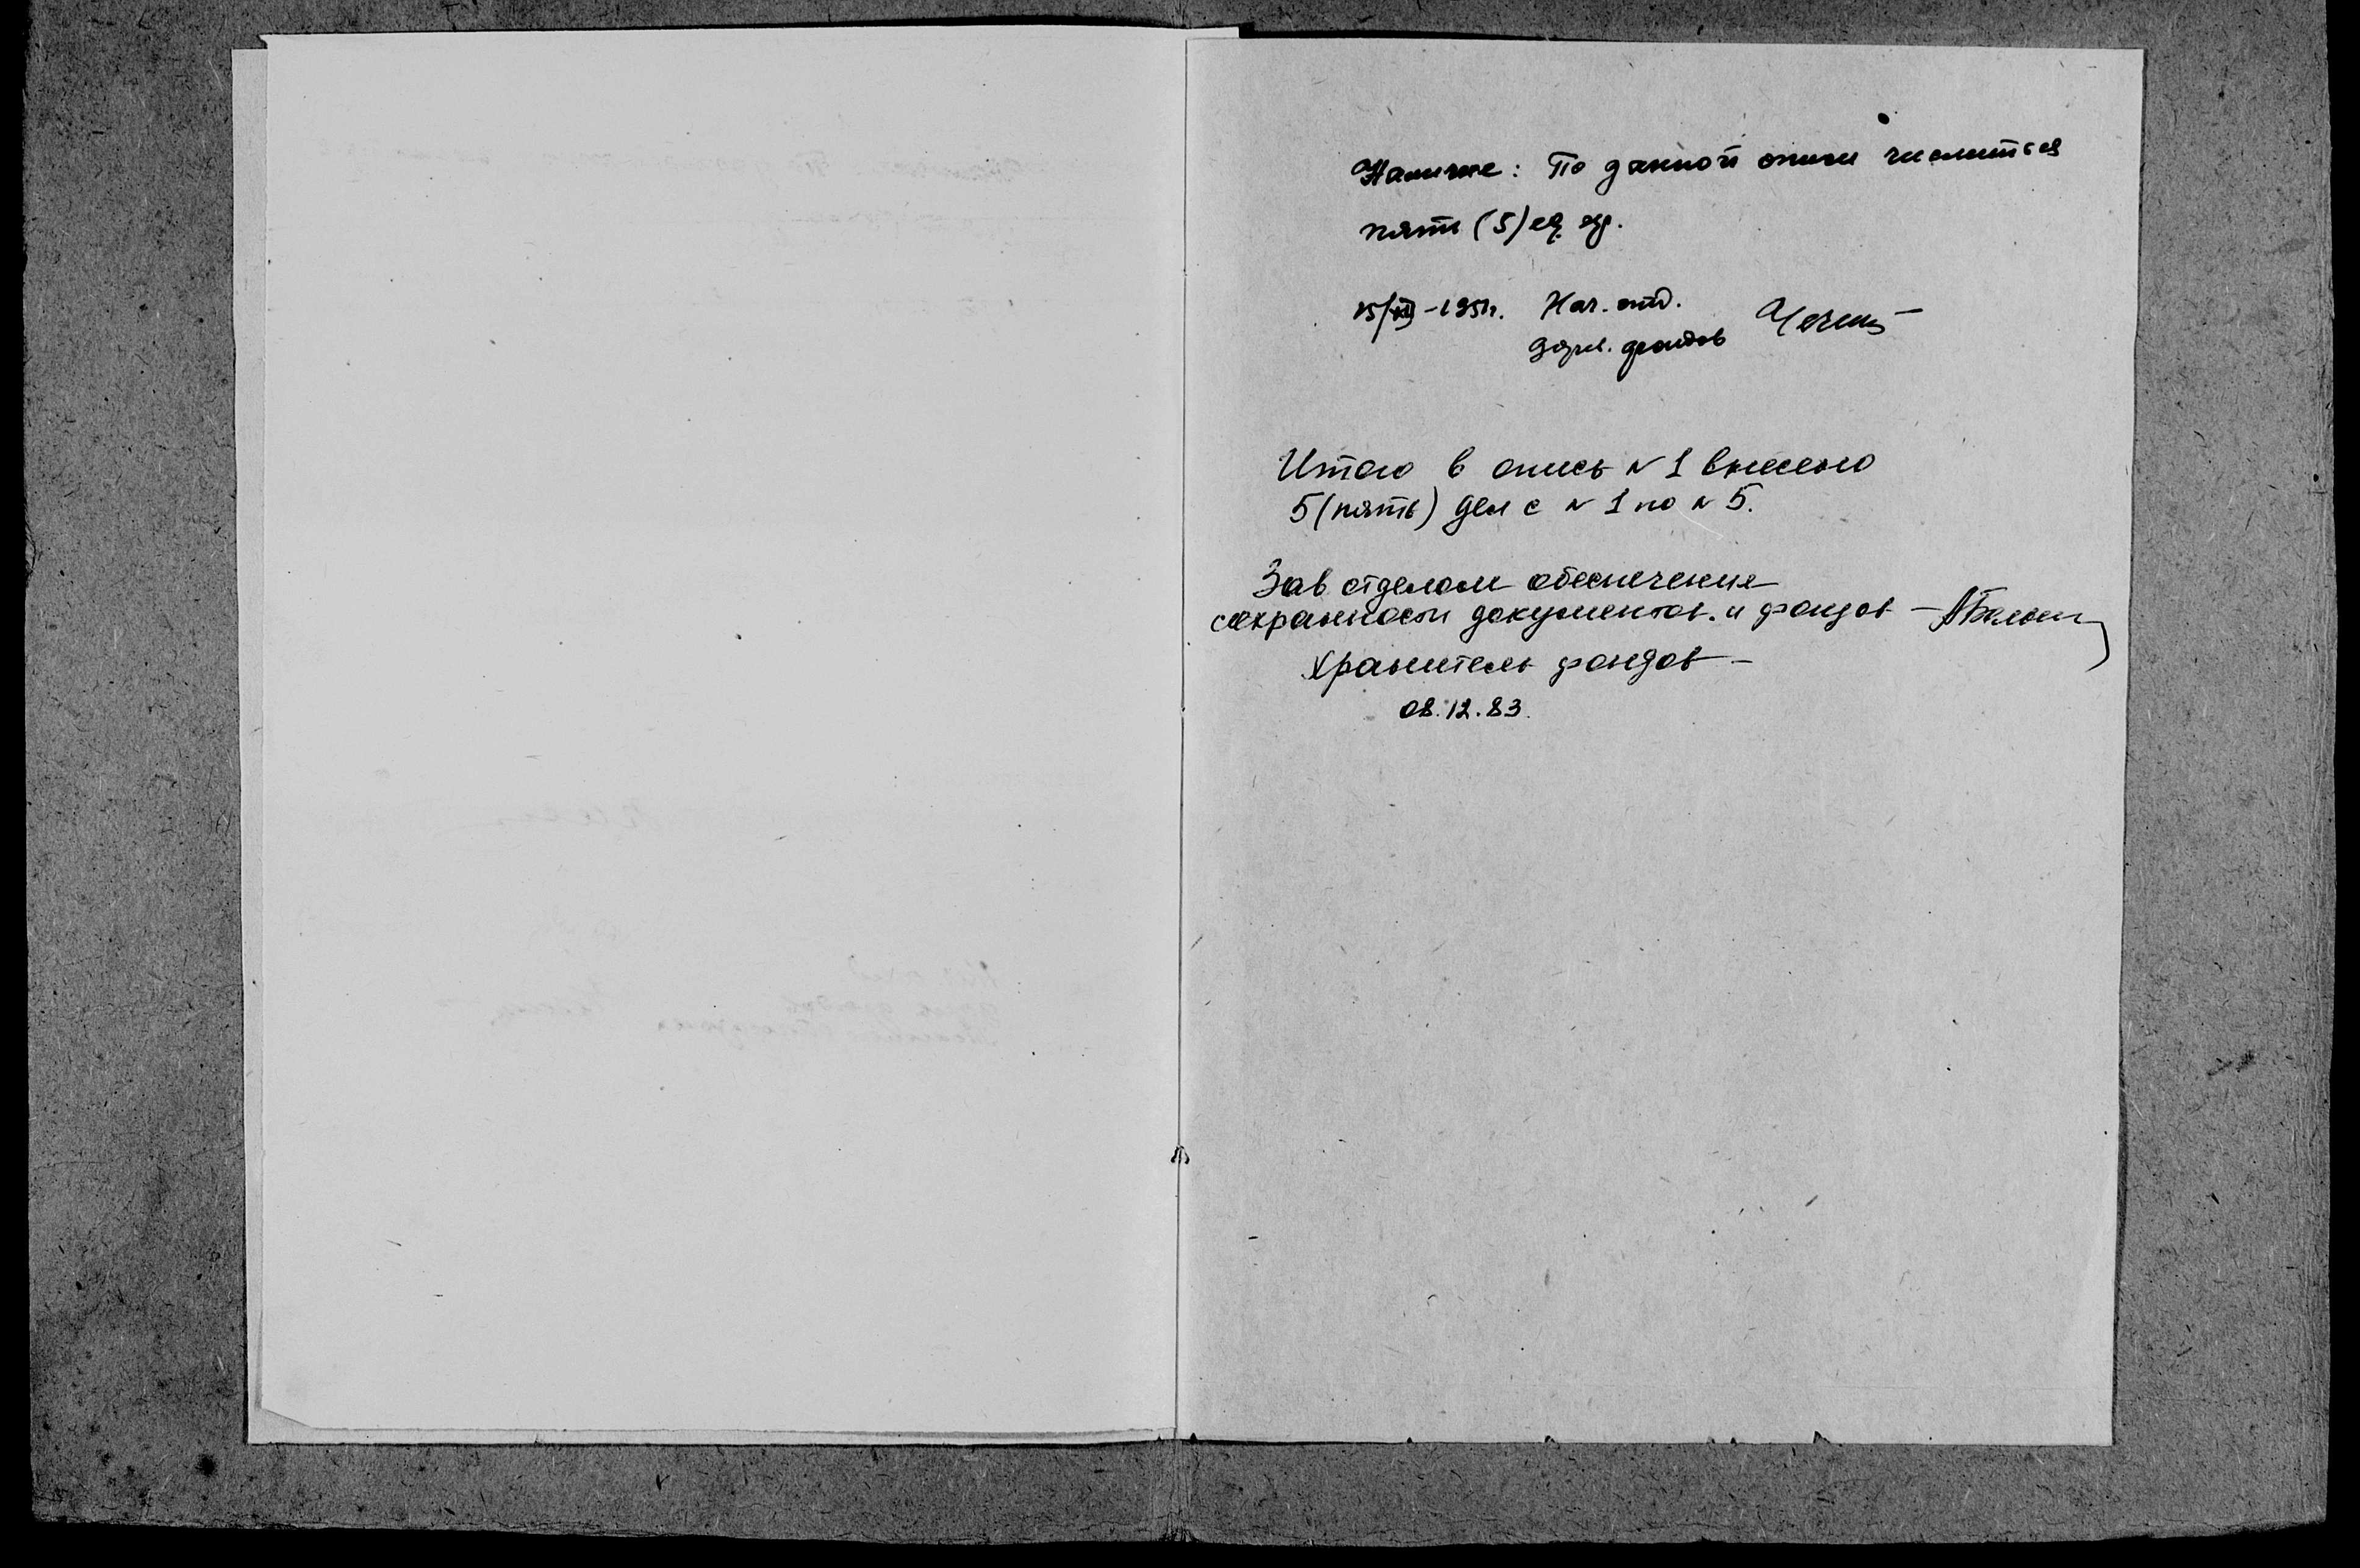 Наличие: По данной описи числиться
пять (5) ед. хр.
15/XII-1951г. Нач. отд.
дорев. фондов
Итого в опись N 1 внесено
5 (пять) дел с N 1 по N 5.
Зав отделом обеспечения
сохранности документов и фондов —
Хранитель фондов —
08.12.83.